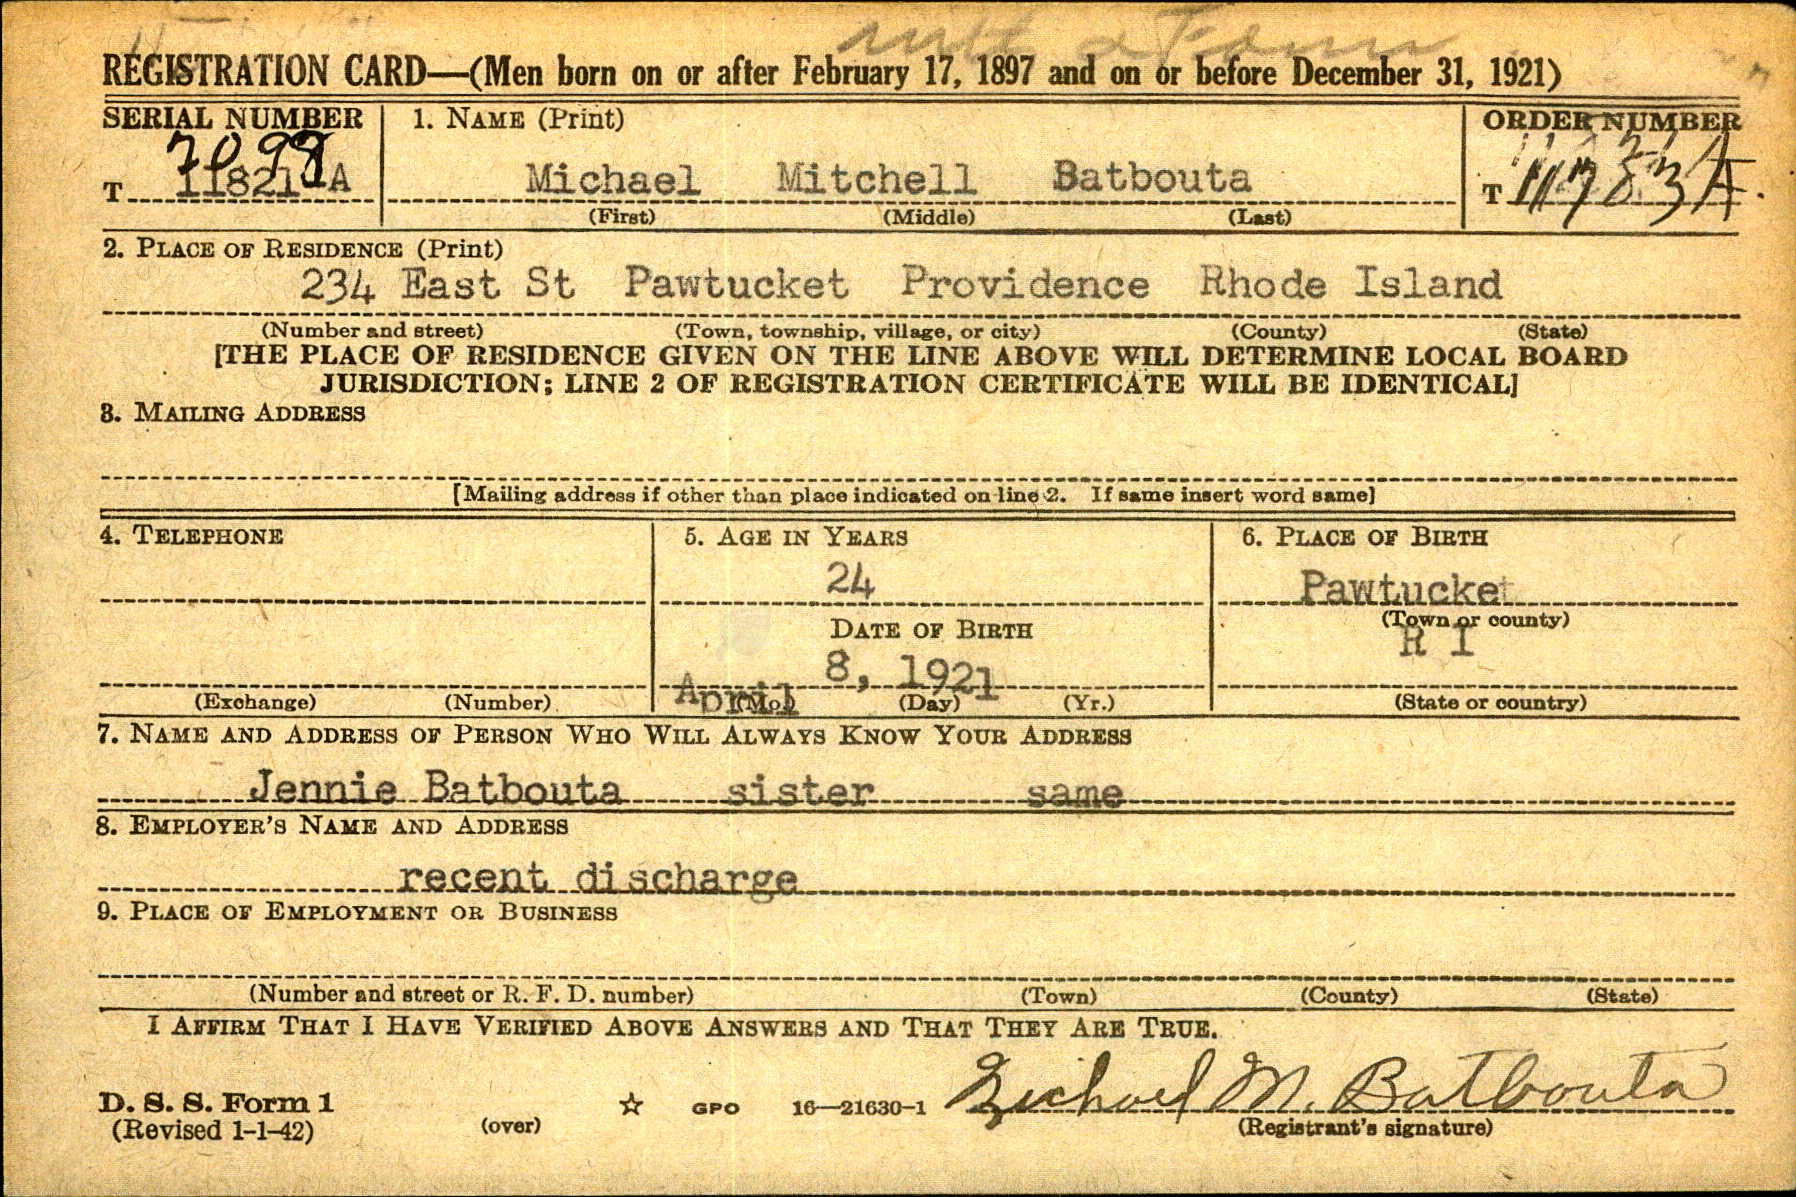 REGISTRATION CARD—(Men born on or after February 17, 1897 and on or before December 31, 1921)
SERIAL NUMBER
1. NAME (Print)
ORDER NUMBER
T 11821 A
Michael Mitchell Batbouta
T 11783A.
(First) (Middle) (Last)
2. PLACE OF RESIDENCE (Print)
234 East St Pawtucket Providence Rhode Island
(Number and street) (Town, township, village, or city) (County) (State)
[THE PLACE OF RESIDENCE GIVEN ON THE LINE ABOVE WILL DETERMINE LOCAL BOARD
JURISDICTION; LINE 2 OF REGISTRATION CERTIFICATE WILL BE IDENTICAL]
3. MAILING ADDRESS
[Mailing address if other than place indicated on line 2. If same insert word same]
4. TELEPHONE
5. AGE IN YEARS
6. PLACE OF BIRTH
24
Pawtucket
(Town or county)
DATE OF BIRTH
R I
April 8, 1921
(Exchange) (Number)
(Mo.) (Day) (Yr.)
(State or country)
7. NAME AND ADDRESS OF PERSON WHO WILL ALWAYS KNOW YOUR ADDRESS
Jennie Batbouta sister same
8. EMPLOYER'S NAME AND ADDRESS
recent discharge
9. PLACE OF EMPLOYMENT OR BUSINESS
(Number and street or R. F. D. number) (Town) (County) (State)
I AFFIRM THAT I HAVE VERIFIED ABOVE ANSWERS AND THAT THEY ARE TRUE.
Michael M. Batbouta
D. S. S. Form 1
(Revised 1-1-42)
(over)
GPO 16—21630-1
(Registrant's signature)